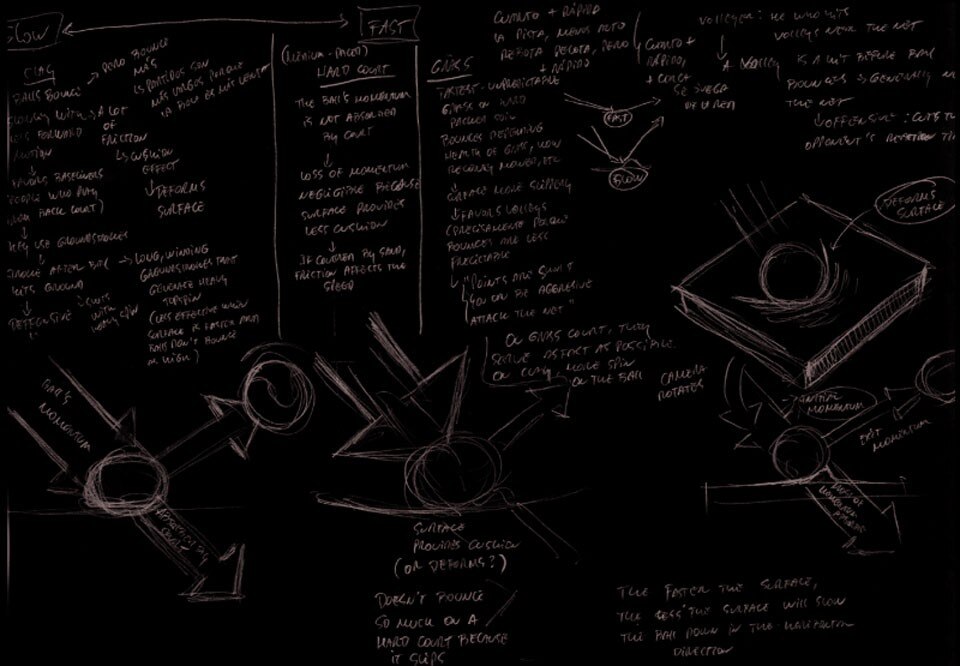 SLOW
FAST
CLAY
BALLS BOUNCE
→ PERO BOUNCE
MÁS
LOS PARTIDOS SON
MÁS LARGOS PORQUE
LA BOLA ES MÁS LENTA
A LOT
OF
FRICTION
↳ CUSHION
EFFECT
↓ DEFORMS
SURFACE
FAVORS BASELINERS
PEOPLE WHO PLAY
BACK COURT)
THEY USE GROUNDSTROKES
STROKE AFTER BALL
HITS GROUND
→ LONG, WINNING
GROUNDSTROKES THAT
GENERATE HEAVY
TOPSPIN
(LESS EFFECTIVE WHEN
SURFACE IS FASTER AND
BALLS DON'T BOUNCE
AS HIGH)
DEFFENSIVE
(MEDIUM-PACED)
HARD COURT
THE BALL'S MOMENTUM
IS NOT ABSORBED
BY COURT
↓
LOSS OF MOMENTUM
NEGLIGIBLE BECAUSE
SURFACE PROVIDES
LESS CUSHION
↓
IF COVERED BY SAND,
FRICTION AFFECTS THE
SPEED
GRASS
FASTEST - UNPREDICTABLE
GRASS ON HARD
PACKED SOIL
BOUNCES DEPENDING
HEALTH OF GRASS, HOW
RECENTLY MOWED, ETC
↓ SURFACE MORE SLIPPERY
↓ FAVORS VOLLEYS
(PRECISAMENTE PORQUE
BOUNCES ARE LESS
PREDICTABLE
"POINTS ARE SHORT
YOU GOTTA BE AGGRESSIVE
ATTACK THE NET"
ON GRASS COURT, THEY
SERVE AS FAST AS POSSIBLE.
ON CLAY, MORE SPIN
ON THE BALL
CUANTO + RÁPIDO
LA PISTA, MENOS ALTO
REBOTA PELOTA, PERO
+ RÁPIDO
CUANTO +
RÁPIDO,
+ CERCA
SE JUEGA
DE LA RED
FAST
SLOW
VOLLEYER: HE WHO HITS
VOLLEYS NEAR THE NET
↓
A VOLLEY
IS A HIT BEFORE BALL
BOUNCES → GENERALLY
THE NET
↓ OFFENSIVE: CUTS THE
OPPONENT'S REACTION
DEFORMS
SURFACE
CAMERA
ROTATES
BALL'S
MOMENTUM
ABSORBED BY
COURT
→ INITIAL
MOMENTUM
EXIT
MOMENTUM
SURFACE
PROVIDES CUSHION
(OR DEFORMS?)
DOESN'T BOUNCE
SO MUCH ON A
HARD COURT BECAUSE
IT SLIPS
THE FASTER THE SURFACE,
THE LESS THE SURFACE WILL SLOW
THE BALL DOWN IN THE HORIZONTAL
DIRECTION